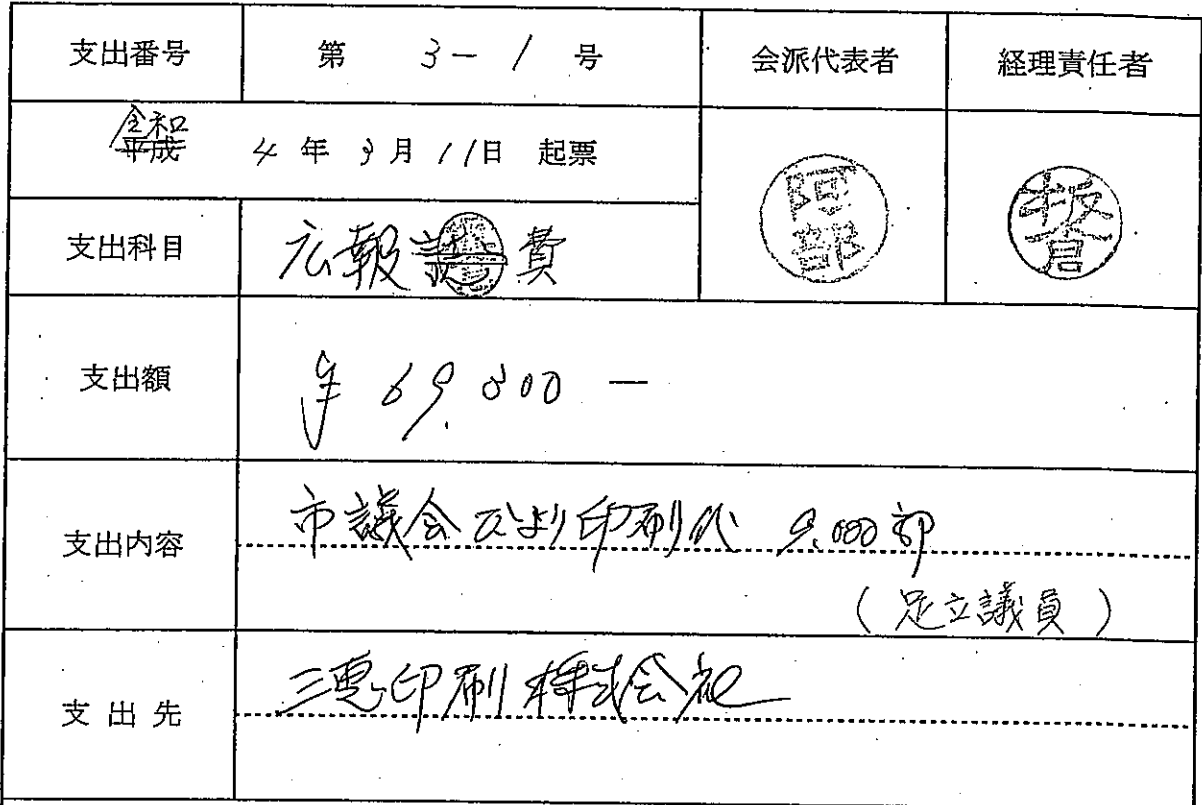 支出番号 第 3-1 号 会派代表者 経理責任者
令和
平成 4年3月11日 起票
阿部 板倉
支出科目 広報費
支出額 ¥69,300-
支出内容 市議会だより印刷代 9,000部
(足立議員)
支出先 三恵印刷株式会社